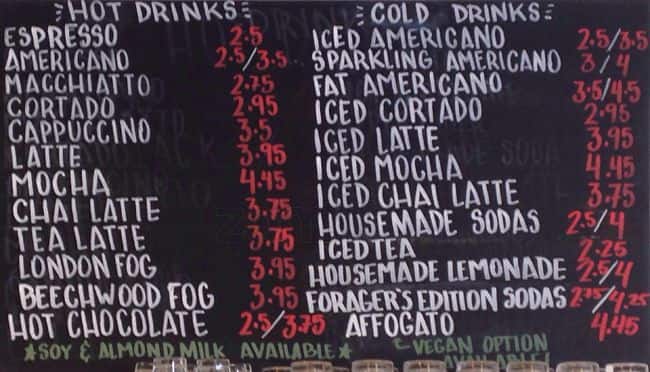 HOT DRINKS
ESPRESSO 2.5
AMERICANO 2.5/3.5
MACCHIATTO 2.75
CORTADO 2.95
CAPPUCCINO 3.5
LATTE 3.95
MOCHA 4.45
CHAI LATTE 3.75
TEA LATTE 3.75
LONDON FOG 3.95
BEECHWOOD FOG 3.95
HOT CHOCOLATE 2.5/3.75
★SOY & ALMOND MILK AVAILABLE★
COLD DRINKS
ICED AMERICANO 2.5/3.5
SPARKLING AMERICANO 3/4
FAT AMERICANO 3.5/4.5
ICED CORTADO 2.95
ICED LATTE 3.95
ICED MOCHA 4.45
ICED CHAI LATTE 3.75
HOUSEMADE SODAS 2.5/4
ICED TEA 2.25
HOUSEMADE LEMONADE 2.5/4
FORAGER'S EDITION SODAS 2.75/4.25
AFFOGATO 4.45
VEGAN OPTION
AVAILABLE!